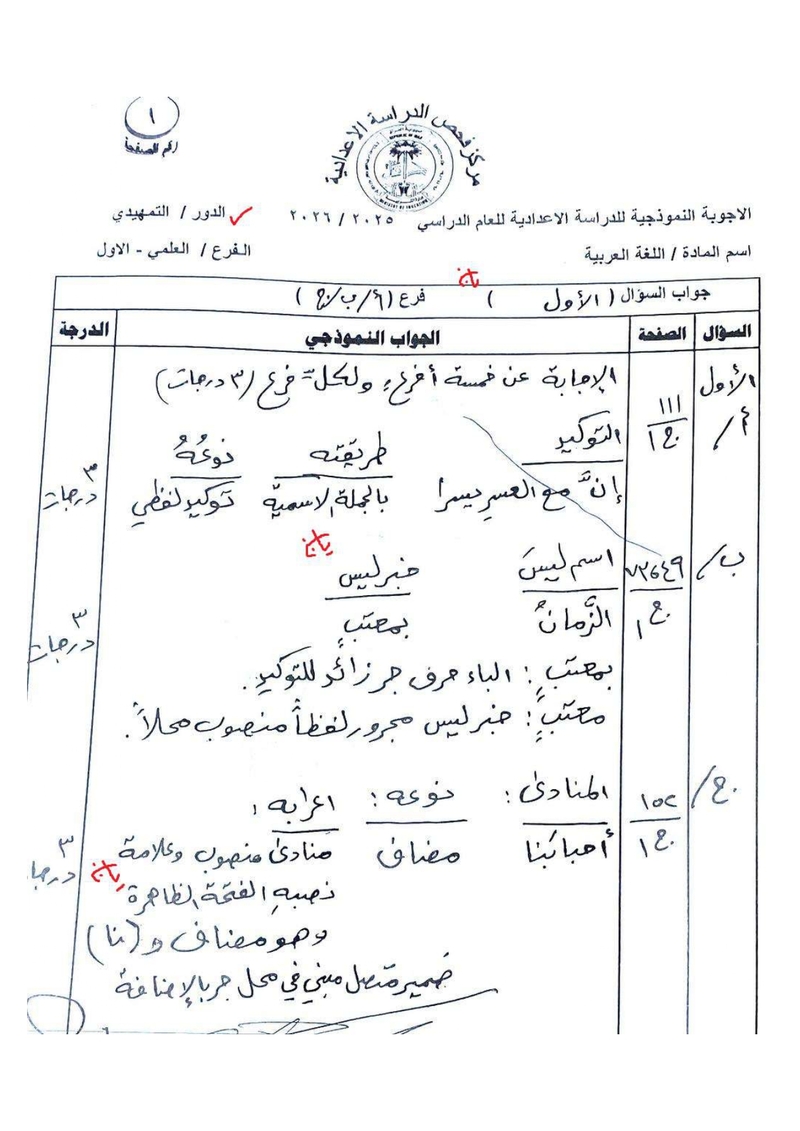 ١
رقم الصفحة
مركز فحص الدراسة الاعدادية
الاجوبة النموذجية للدراسة الاعدادية للعام الدراسي ٢٠٢٥ / ٢٠٢٦ الدور / التمهيدي
اسم المادة / اللغة العربية الفرع / العلمي - الاول
جواب السؤال ( الأول ) فرع ( أ / ب / ج )
السؤال الصفحة الجواب النموذجي الدرجة
الأول الإجابة عن خمسة أفرع، ولكل فرع (٣ درجات)
أ / ١١١ ج١ التوكيد طريقته نوعُهُ
إنَّ مع العسرِ يسرا بالجملة الاسميّة توكيد لفظي ٣ درجات
ب / اسم ليسَ خبر ليس
ج١ الزَّمانُ بمعتبٍ ٣ درجات
بمعتبٍ : الباء حرف جر زائد للتوكيد.
معتبٍ : خبر ليس مجرور لفظاً منصوب محلاً.
ج / ١٥٢ ج١ المنادى : نوعه : اعرابه :
أحبائَنا مضاف منادى منصوب وعلامة ٣
نصبهِ الفتحة الظاهرة
وهو مضاف و (نا)
ضمير متصل مبني في محل جر بالإضافة